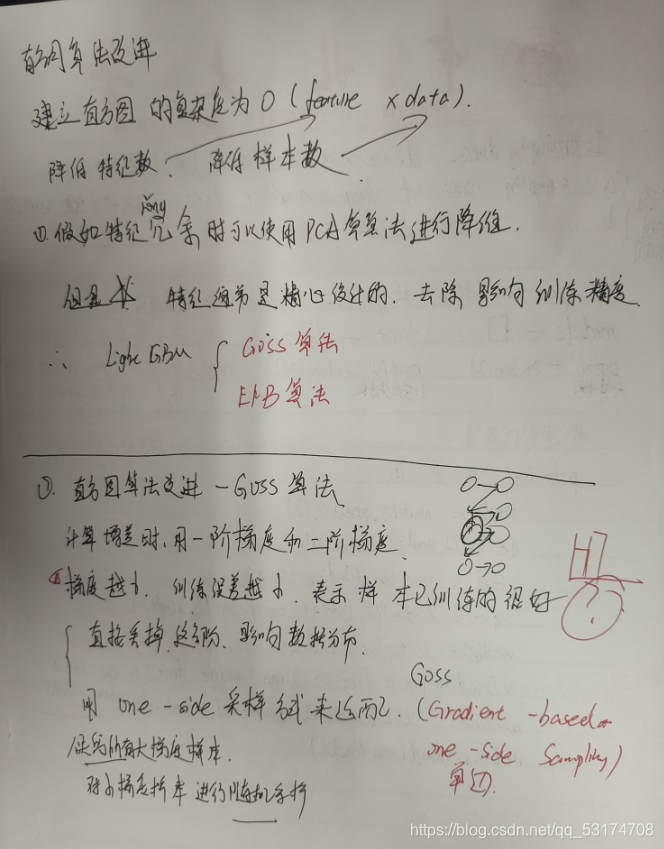 直方图算法改进
建立直方图的复杂度为O(feature x data).
降低特征数、降低样本数
rǒng
①.假如特征冗余时可以使用PCA等算法进行降维.
但是 特征通常是精心设计的.去除影响训练精度.
∴ Light GBM { Goss 算法
EFB 算法
①.直方图算法改进-Goss 算法
计算增益时,用一阶梯度和二阶梯度.
梯度越小.训练误差越小.表示样本已训练的很好
直接丢掉这部分.影响数据分布.
Goss
用 one-side 采样方式来适配.(Gradient-based
one-side Sampling)
算法
保留所有大梯度样本.
对小梯度样本进行随机采样
?
https://blog.csdn.net/qq_53174708